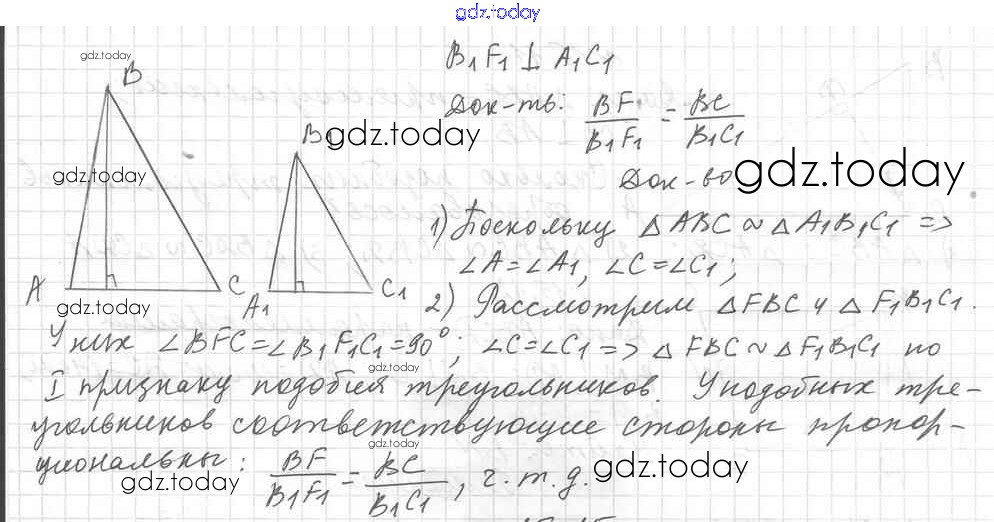 gdz.today
gdz.today
B
B1
gdz.today
gdz.today
A
C
A1
C1
gdz.today
B1F1 ⊥ A1C1
Док-ть: BF/B1F1 = BC/B1C1
gdz.today
Док-во
1) Поскольку △ABC ~ △A1B1C1 =>
∠A=∠A1, ∠C=∠C1;
2) Рассмотрим △FBC и △F1B1C1.
У них ∠BFC=∠B1F1C1=90°; ∠C=∠C1=>△FBC~△F1B1C1 по
gdz.today
I признаку подобия треугольников. У подобных тре-
угольников соответствующие стороны пропор-
gdz.today
циональны: BF/B1F1 = BC/B1C1, ч.т.д.
gdz.today
gdz.today